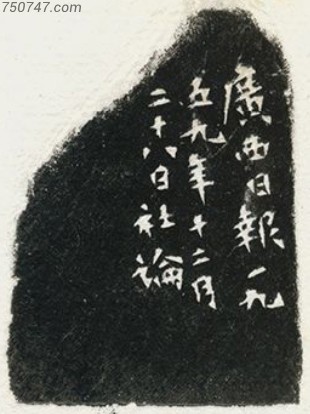 750747.com
廣西日報一九
五九年十二月
二十八日社論